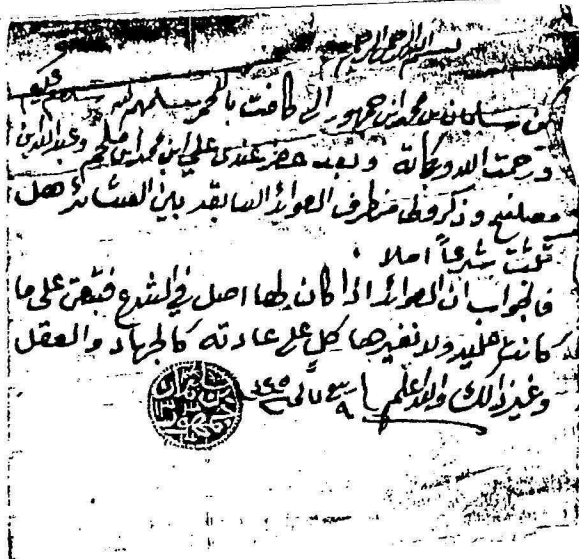 بسم الله الرحمن الرحيم
من سلمان بن محمد ابن جمهور الى كافت بالحمر سلمهم الله سلام عليكم
ورحمت الله وبركاته وبعد حضر عندي علي ابن محمد ابن ملحم وعبدالله ابن
مصلح وذكروا لي من طرف العوائد السابقه بين العشائر هل
تثبت شرعاً املا
فالجواب ان العوائد اذا كان لها اصل في الشرع فتبقى على ما
كانت عليه ولا نغيرها كل على عادته كالجهاد والعقل
وغير ذالك والله اعلم ٩ ربيع ثاني